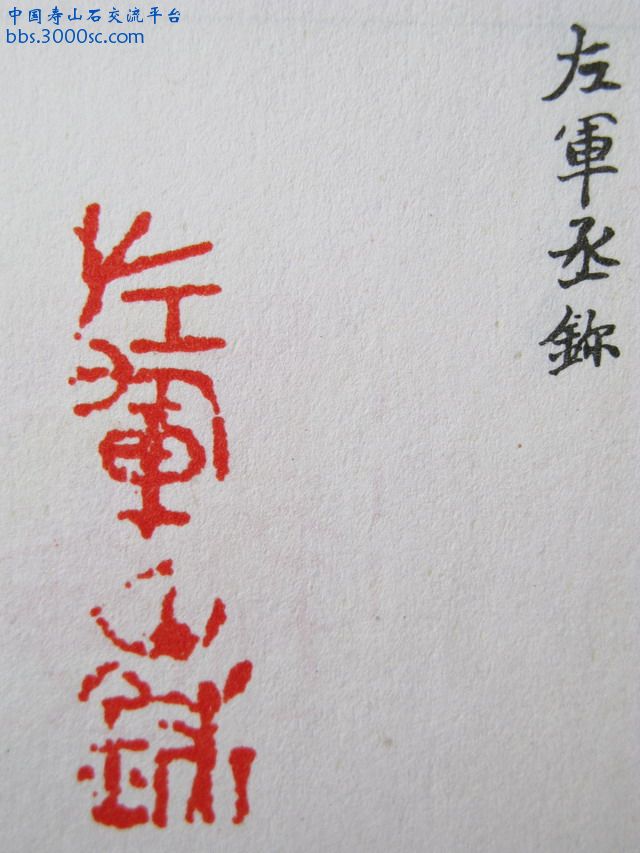 中国寿山石交流平台
bbs.3000sc.com
左軍丞鉨
左軍丞鉨